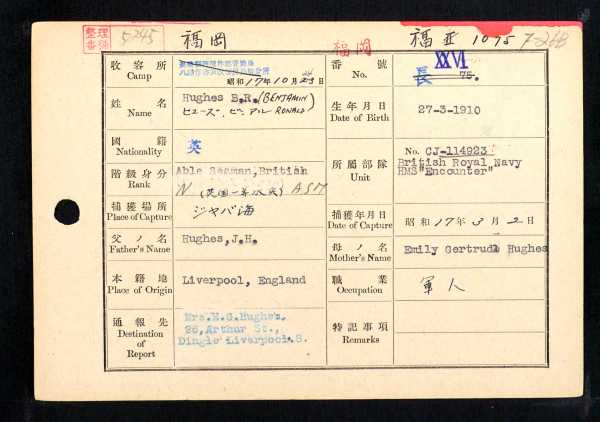 整理番號 5245
福岡
福岡
福亜 1095
7-268
收容所
Camp
昭和17年10月23日
番號
No.
XXVI
長 75.
姓名
Name
Hughes B.R. (BENJAMIN
RONALD)
ヒューズ.ビー.アル
生年月日
Date of Birth
27-3-1910
國籍
Nationality
英
所屬部隊
Unit
No. CJ-114923
British Royal Navy
HMS "Encounter"
階級身分
Rank
Able Seaman, British
N
捕獲場所
Place of Capture
ジャバ海
捕獲年月日
Date of Capture
昭和17年3月2日
父ノ名
Father's Name
Hughes, J.H.
母ノ名
Mother's Name
Emily Gertrude Hughes
本籍地
Place of Origin
Liverpool, England
職業
Occupation
軍人
通報先
Destination
of
Report
Mrs. Hughes,
26, Arthur St.,
Dingle Liverpool.8.
特記事項
Remarks